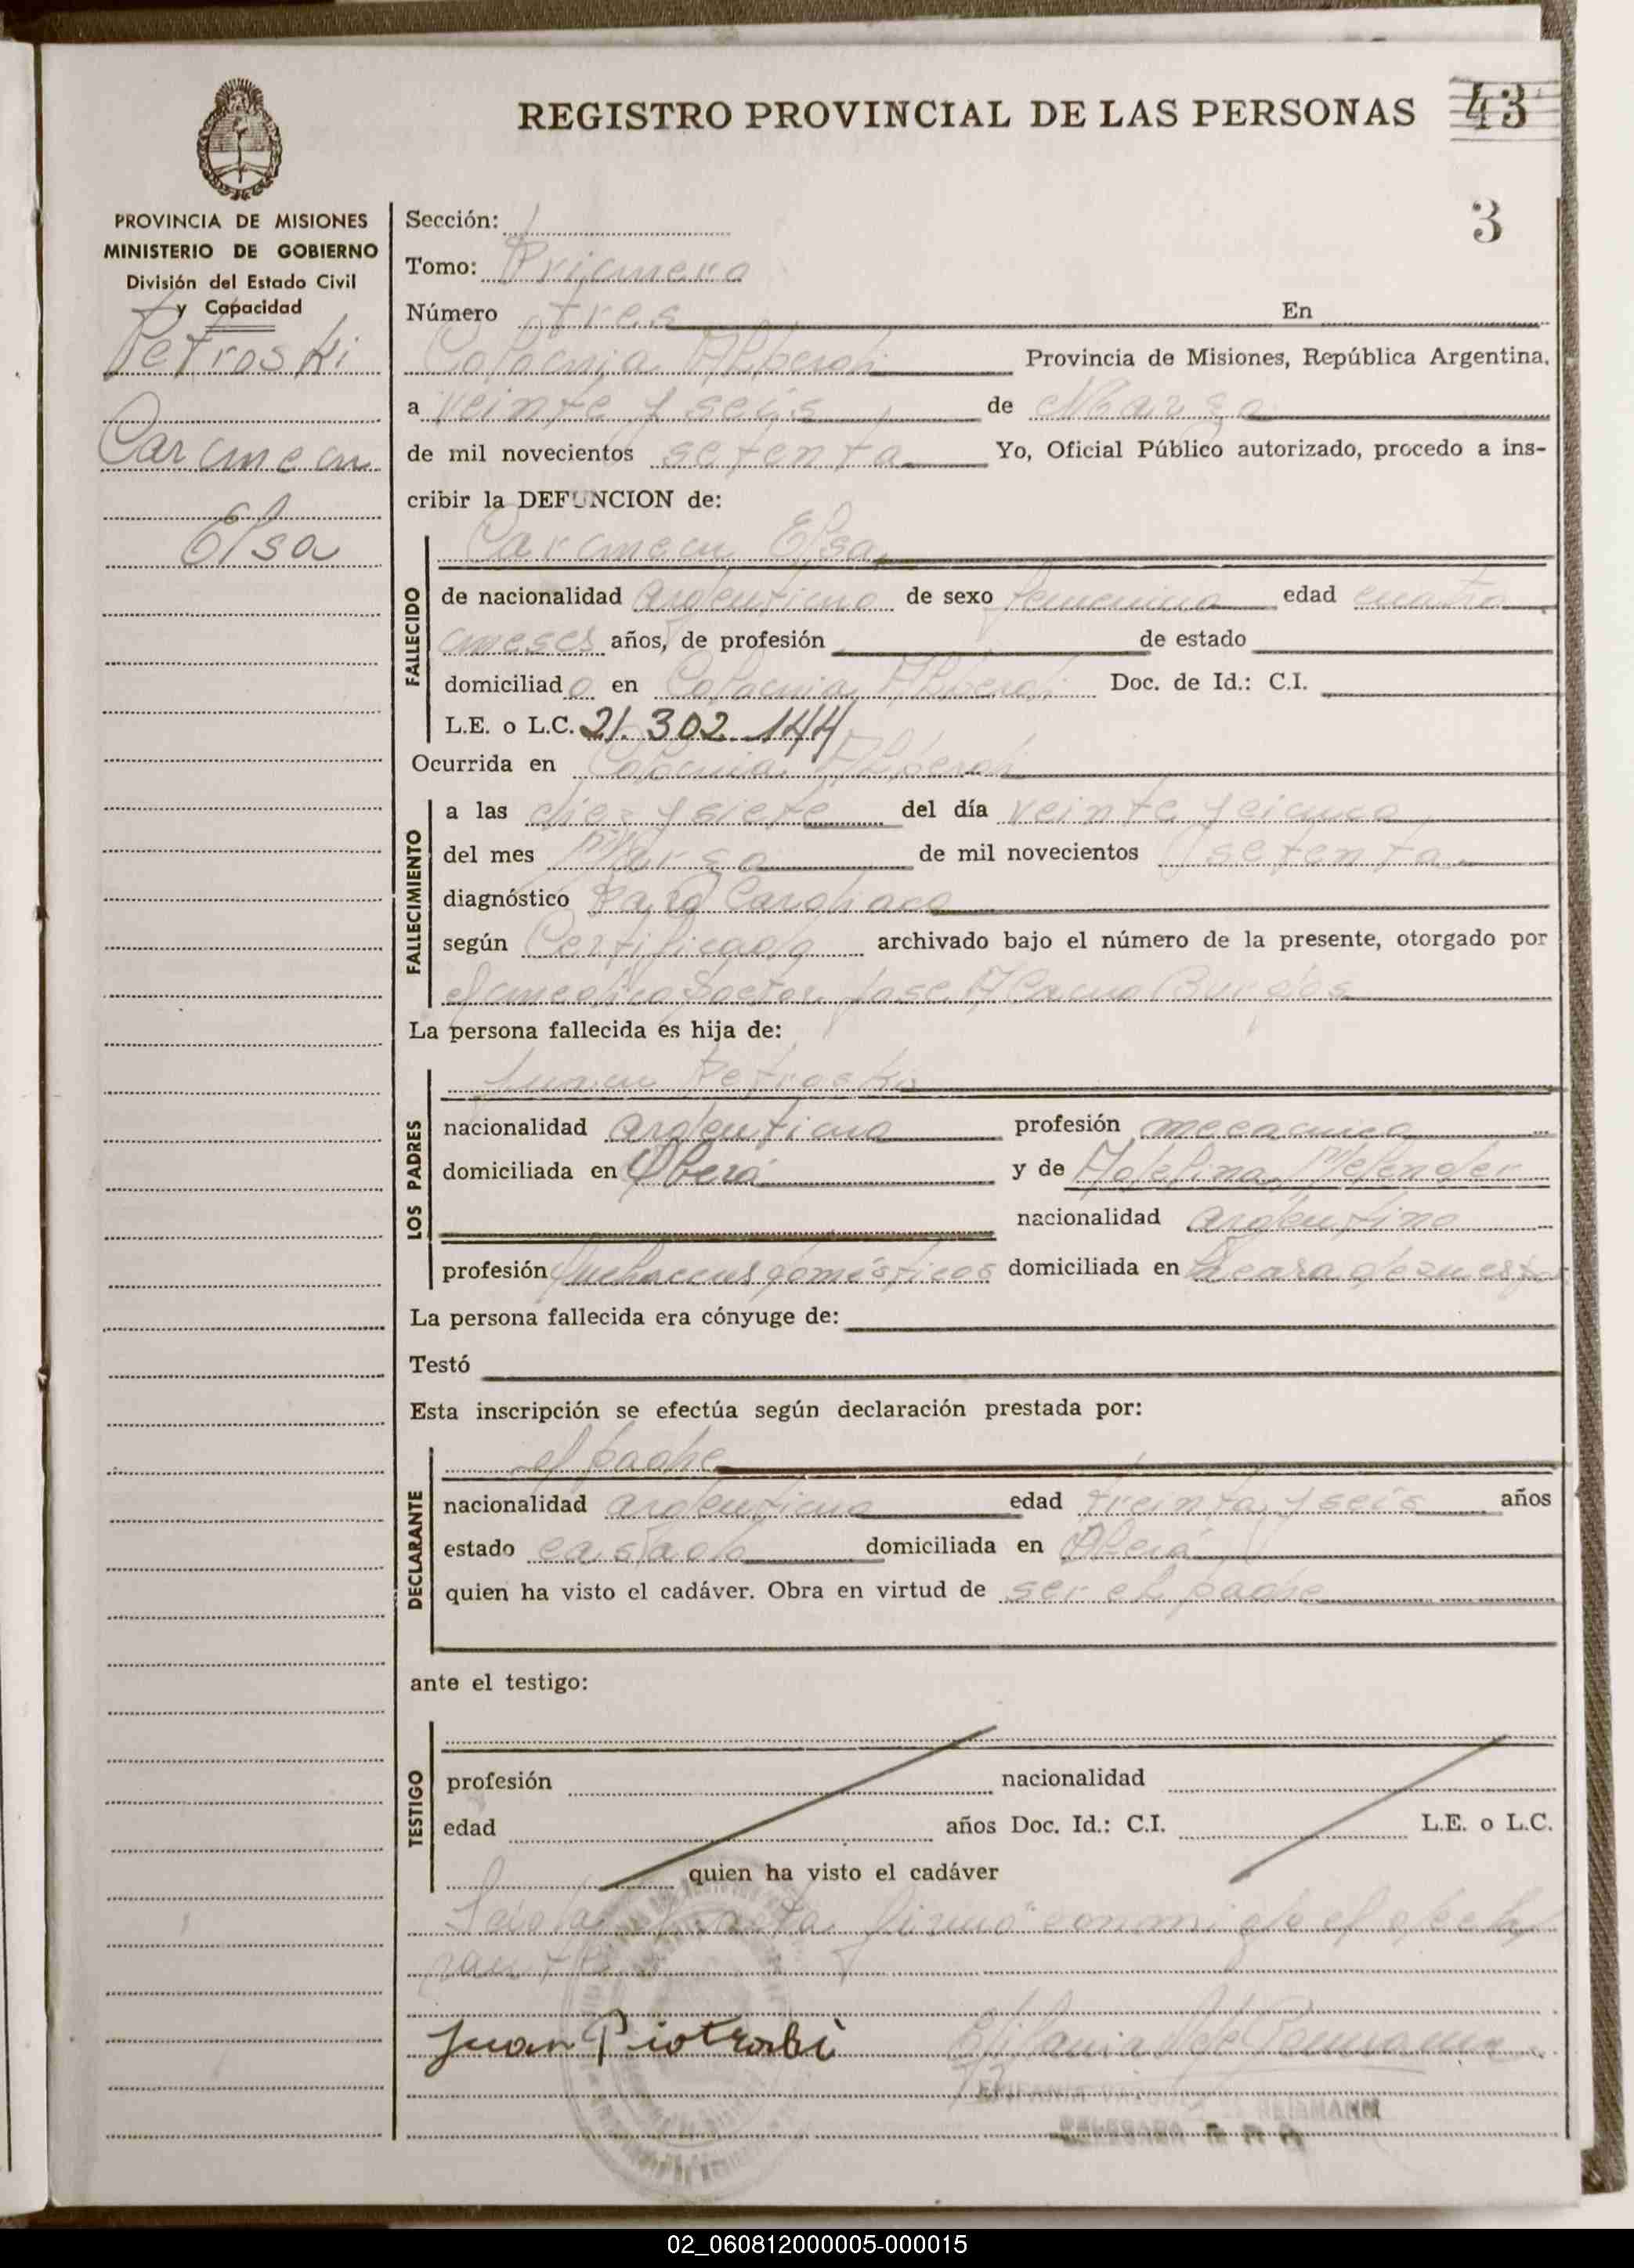 REGISTRO PROVINCIAL DE LAS PERSONAS 43
3
PROVINCIA DE MISIONES
MINISTERIO DE GOBIERNO
División del Estado Civil
y Capacidad
Petroski
Carmen
Elsa
Sección: 1
Tomo: Primero
Número tres En
Colonia Alberdi Provincia de Misiones, República Argentina,
a veinte y seis de Marzo
de mil novecientos setenta Yo, Oficial Público autorizado, procedo a ins-
cribir la DEFUNCION de:
Carmen Elsa
FALLECIDO
de nacionalidad Argentina de sexo femenino edad cuatro
meses años, de profesión de estado
domiciliado en Colonia Alberdi Doc. de Id.: C.I.
L.E. o L.C. 21.302.144
Ocurrida en Colonia Alberdi
FALLECIMIENTO
a las diez y siete del día veinte y cinco
del mes Marzo de mil novecientos setenta
diagnóstico Paro Cardiaco
según Certificado archivado bajo el número de la presente, otorgado por
el medico Doctor Jose Burgos
La persona fallecida es hija de:
LOS PADRES
Juan Petroski
nacionalidad argentina profesión mecanico
domiciliada en Oberá y de Adelina Melender
nacionalidad argentino
profesión quehaceres domésticos domiciliada en
La persona fallecida era cónyuge de:
Testó
Esta inscripción se efectúa según declaración prestada por:
DECLARANTE
el padre
nacionalidad argentina edad treinta y seis años
estado casado domiciliada en Oberá
quien ha visto el cadáver. Obra en virtud de ser el padre
ante el testigo:
TESTIGO
profesión nacionalidad
edad años Doc. Id.: C.I. L.E. o L.C.
quien ha visto el cadáver
Leida el acta firmó conmigo el decla
rante
Juan Piotroski
REISMANN
02_060812000005-000015